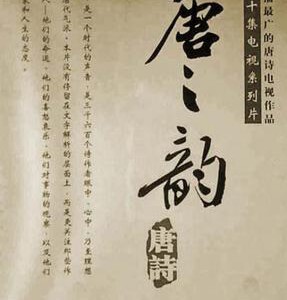 最广的唐诗电视作品
十集电视系列片
唐之韵
唐詩
是一个时代的声音,是三千六百个诗作者眼中、心中,乃至理想
代气派。本片没有停留在文字解释的层面上,而是更关注那些作
人——他们的命运、他们的喜怒哀乐、他们对事物的观察,以及他们
家和人生的态度。